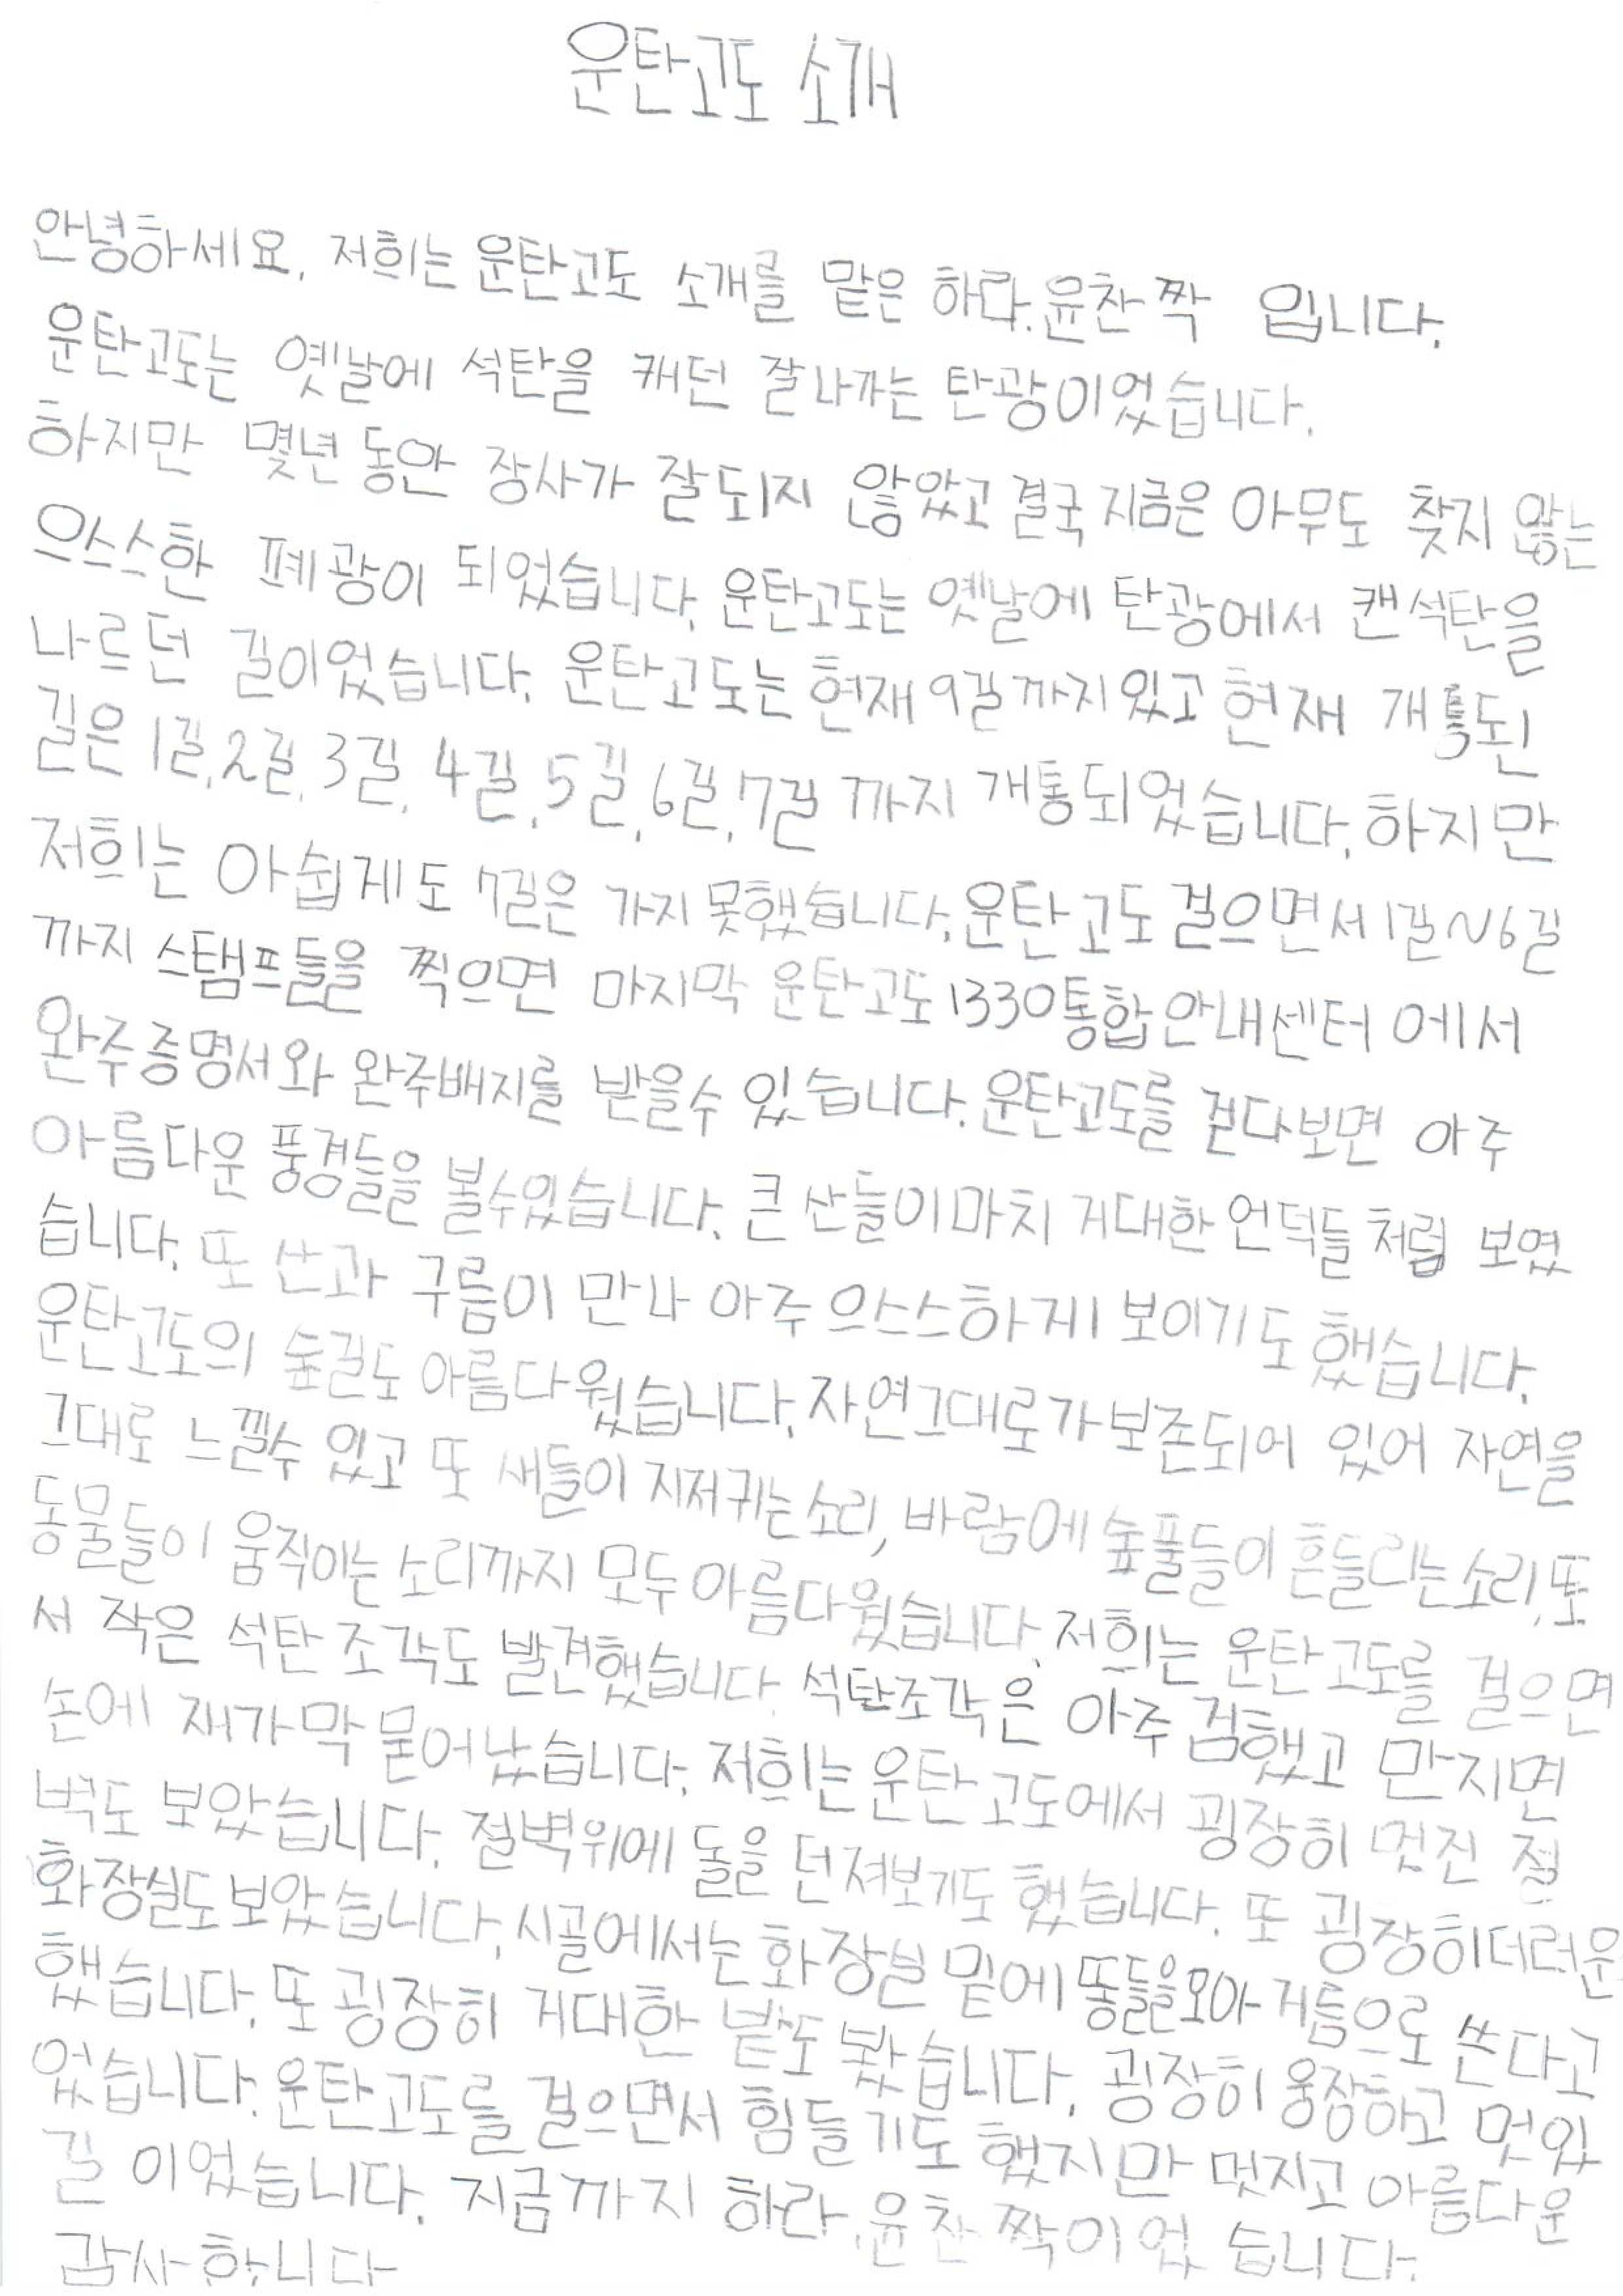 운탄고도 소개
안녕하세요. 저희는 운탄고도 소개를 맡은 하라.윤찬 짝 입니다.
운탄고도는 옛날에 석탄을 캐던 잘나가는 탄광이었습니다.
하지만 몇년동안 장사가 잘되지 않았고 결국 지금은 아무도 찾지 않는
으스스한 폐광이 되었습니다. 운탄고도는 옛날에 탄광에서 캔 석탄을
나르던 길이었습니다. 운탄고도는 현재 9길까지 있고 현재 개통된
길은 1길, 2길, 3길, 4길, 5길, 6길, 7길 까지 개통되었습니다. 하지만
저희는 아쉽게도 7길은 가지 못했습니다. 운탄고도 걸으면서 1길~6길
까지 스탬프들을 찍으면 마지막 운탄고도1330통합안내센터 에서
완주증명서와 완주배지를 받을수 있습니다. 운탄고도를 걷다보면 아주
아름다운 풍경들을 볼수있습니다. 큰 산들이 마치 거대한 언덕들 처럼 보였
습니다. 또 산과 구름이 만나 아주 으스스하게 보이기도 했습니다.
운탄고도의 숲길도 아름다웠습니다. 자연그대로가 보존되어 있어 자연을
그대로 느낄수 있고 또 새들이 지저귀는소리, 바람에 숲풀들이 흔들리는소리, 또
동물들이 움직이는 소리까지 모두 아름다웠습니다. 저희는 운탄고도를 걸으면
서 작은 석탄 조각도 발견했습니다. 석탄조각은 아주 검했고 만지면
손에 재가 막 묻어났습니다. 저희는 운탄고도에서 굉장히 멋진 절
벽도 보았습니다. 절벽위에 돌을 던져보기도 했습니다. 또 굉장히더러운
화장실도 보았습니다. 시골에서는 화장실 밑에 똥들을모아 거름으로 쓴다고
했습니다. 또 굉장히 거대한 밭도 봤습니다. 굉장히 웅장하고 멋있
었습니다. 운탄고도를 걸으면서 힘들기도 했지만 멋지고 아름다운
길 이었습니다. 지금까지 하라.윤찬 짝이었 습니다.
감사합니다